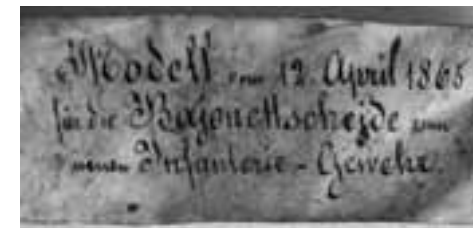 Modell vom 12. April 1865
für die Bajonettscheide zum
neuen Infanterie-Gewehr.